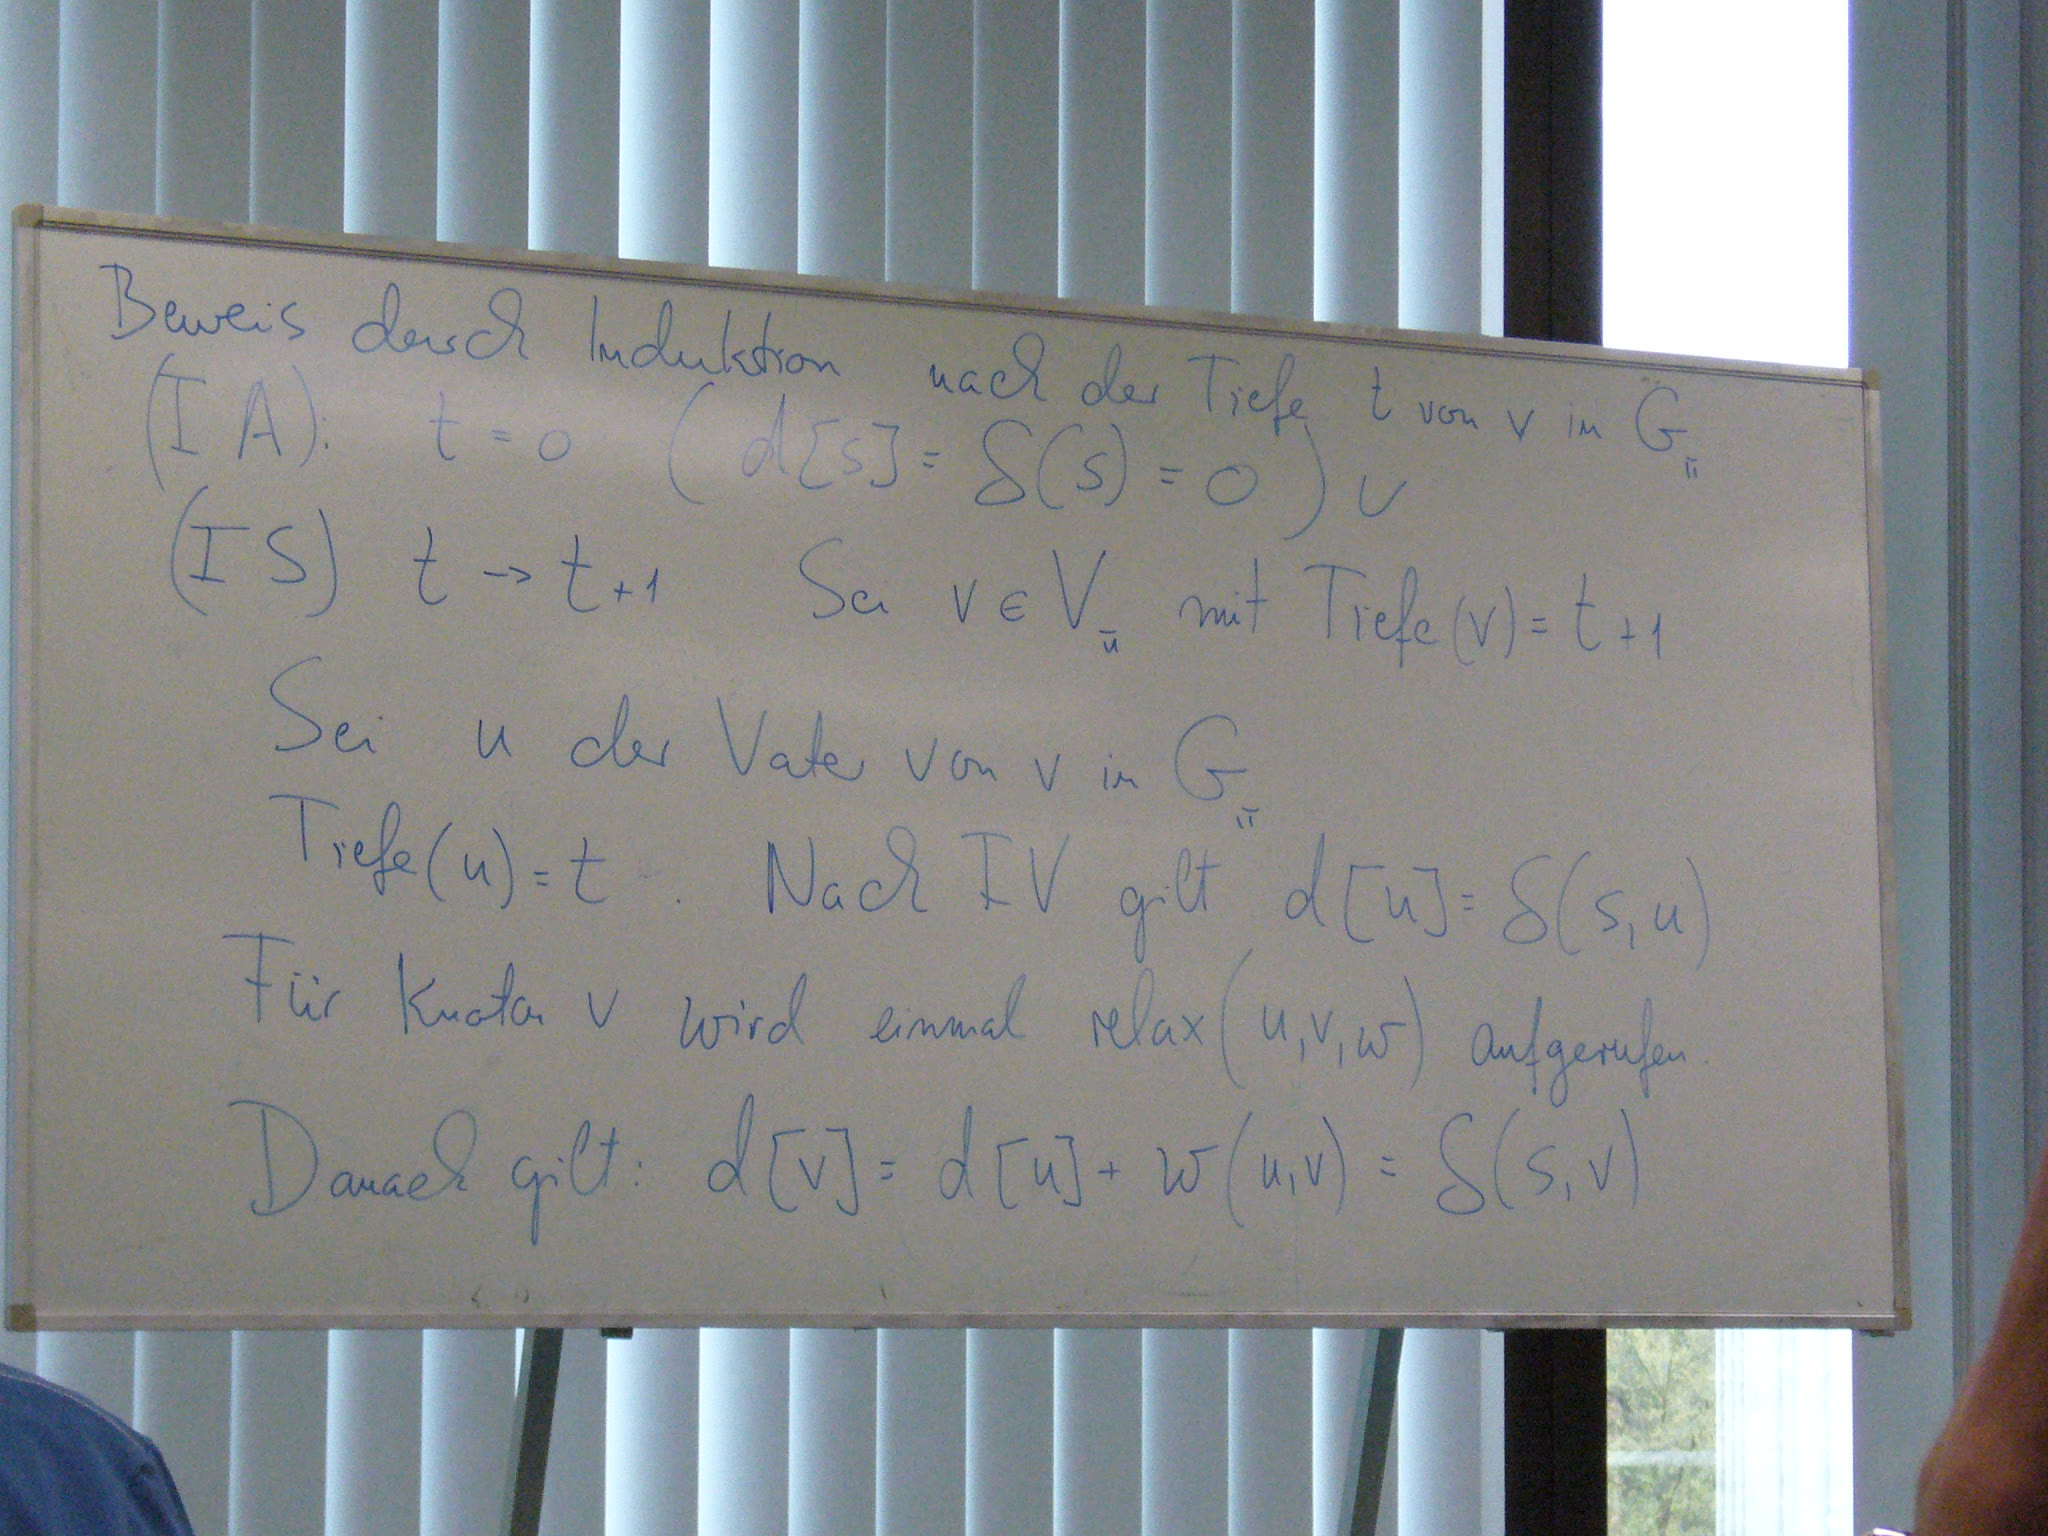 Beweis durch Induktion nach der Tiefe t von v in G_π
(I A): t = 0 ( d[s] = δ(s) = 0 ) ✓
(I S) t → t+1 Sei v ∈ V_π mit Tiefe(v) = t+1
Sei u der Vater von v in G_π
Tiefe(u) = t . Nach IV gilt d[u] = δ(s,u)
Für Knoten v wird einmal relax(u,v,w) aufgerufen.
Danach gilt: d[v] = d[u] + w(u,v) = δ(s,v)